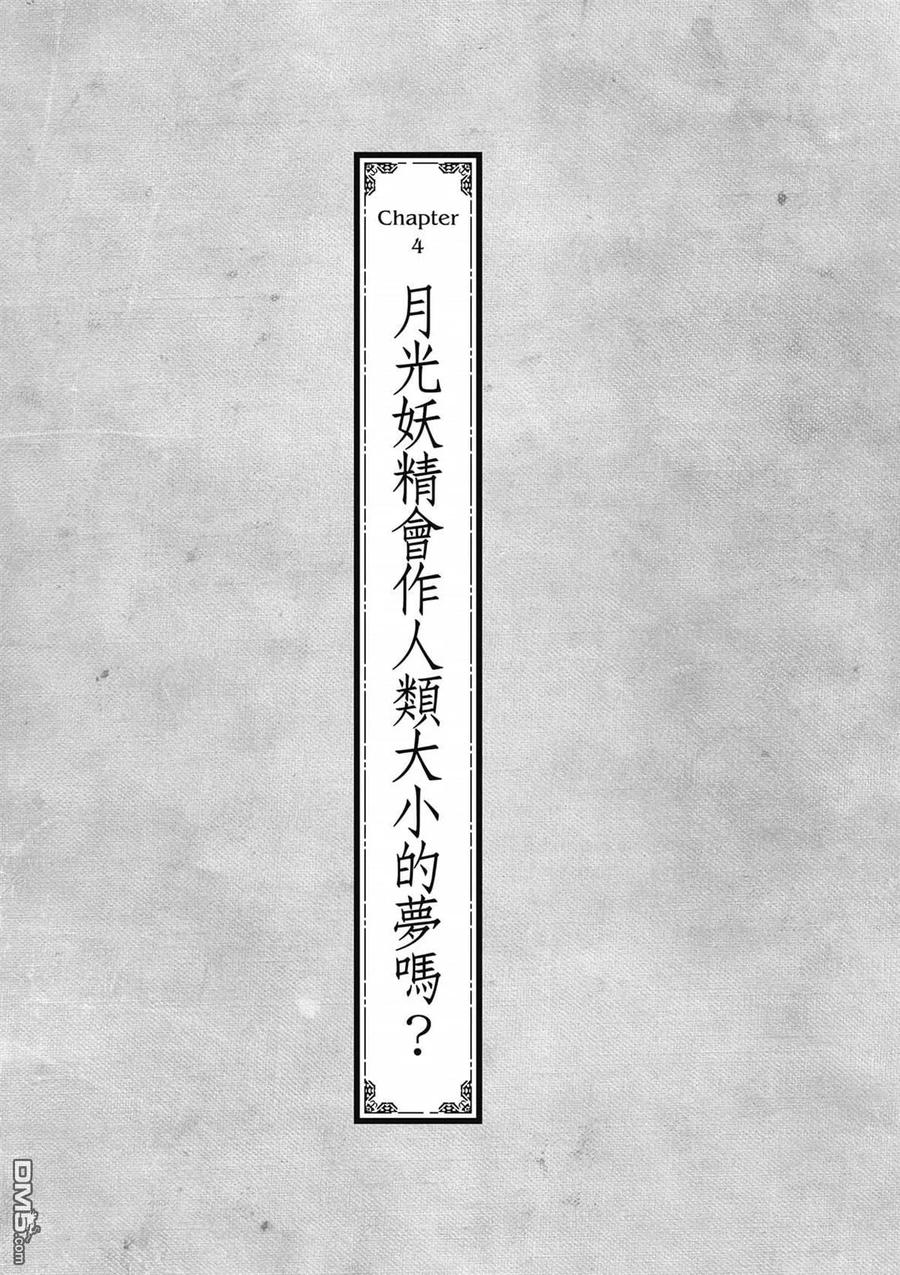 Chapter
4
月光妖精會作人類大小的夢嗎？
DM5.com